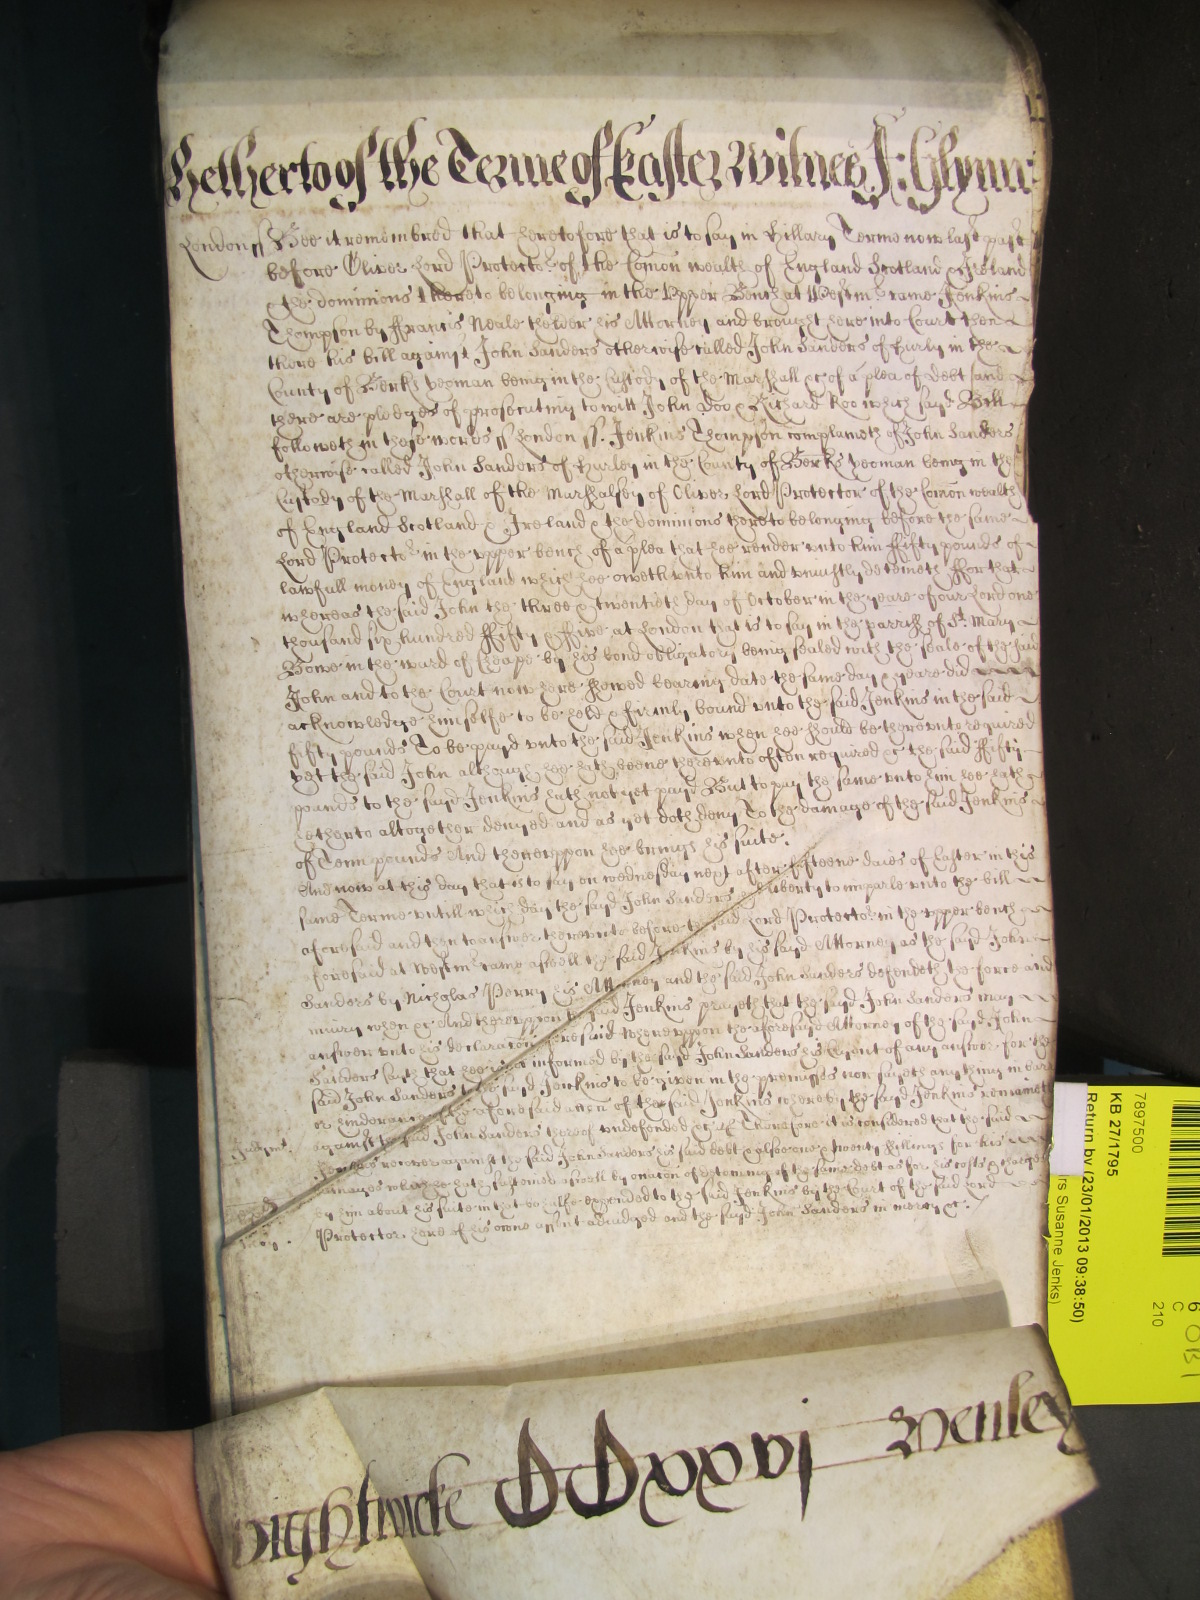 hetherto of the Terme of Easter Witnes J: Glynn:
London ss Bee it remembred that heretofore that is to say in Hillary Terme now last past
before Oliver Lord Protector of the Comon wealth of England Scotland & Ireland
& the dominions thereto belonging in the Upper Bench at Westmr came Jenkins
Thompson by ffrancis Neale the elder his Attorney and brought here into Court then
there his bill against John Sanders otherwise called John Sanders of Hurly in the
County of Berks yeoman being in the Custody of the Marshall &c of a plea of debt and
there are pledges of prosecuting to witt John Doo & Richard Roo which sayd Bill
followeth in these words ss London ss. Jenkins Thompson complaineth of John Sanders
otherwise called John Sanders of Hurley in the County of Berks yeoman being in the
Custody of the Marshall of the Marshalsey of Oliver Lord Protector of the Comon wealth
of England Scotland & Ireland & the dominions thereto belonging before the same
Lord Protector in the upper bench of a plea that hee render unto him ffifty pounds of
lawfull money of England which hee oweth unto him and unjustly deteineth ffor that
whereas the said John the three & twentieth day of October in the yeare of our Lord one
thousand six hundred ffifty & ffive at London that is to say in the parrish of St. Mary
Bowe in the ward of Cheape by his bond obligatory being sealed with the seale of the said
John and to the Court now here shewed bearing date the same day & yeare did
acknowledge himselfe to be held & firmly bound unto the said Jenkins in the said
fifty pounds To be payd unto the said Jenkins when hee should be thereunto required
yet the said John although hee hath beene thereunto often required &c the said ffifty
pounds to the sayd Jenkins hath not yet payd But to pay the same unto him hee hath
hetherto altogether denyed and as yet doth deny To the damage of the said Jenkins
of Tenn pounds And thereuppon hee brings his suite.
And now at this day that is to say on wednesday next after fifteene daies of Easter in this
same Terme untill which day the sayd John Sanders had liberty to imparle unto the bill
aforesaid and then to answer thereunto before the said Lord Protector in the upper bench
aforesaid at Westmr came aswell the said Jenkins by his sayd Attorney as the sayd John
Sanders by Nicholas Perry his Attorney and the said John Sanders defendeth the force and
iniury when &c And thereuppon the said Jenkins prayeth that the sayd John Sanders may
answer unto his declaracon aforesaid whereuppon the aforesaid Attorney of the sayd John
Sanders sayth that hee is not informed by the sayd John Sanders his Clyent of any answer for the
said John Sanders to the sayd Jenkins to be given in the premisses nor sayeth any thing in barr
or hinderance of the aforesaid accon of the said Jenkins whereby the sayd Jenkins remaineth
against the said John Sanders thereof undefended &c Therefore it is considered that the said
Judgmt.
Jenkins recover against the said John Sanders his said debt & alsoe one & twenty shillings for his
damages which he hath susteined aswell by occacon of deteining of the same debt as for his costs & charges
by him about his suite in that behalfe expended to the said Jenkins by the Court of the said Lord
Protector here of his owne assent adiudged and the sayd John Sanders in mercy &c.
Mercy.
Wightwicke DDxxvj Henley
7897500
KB 27/1795
Return by (23/01/2013 09:38:50)
rs Susanne Jenks)
6
C
210